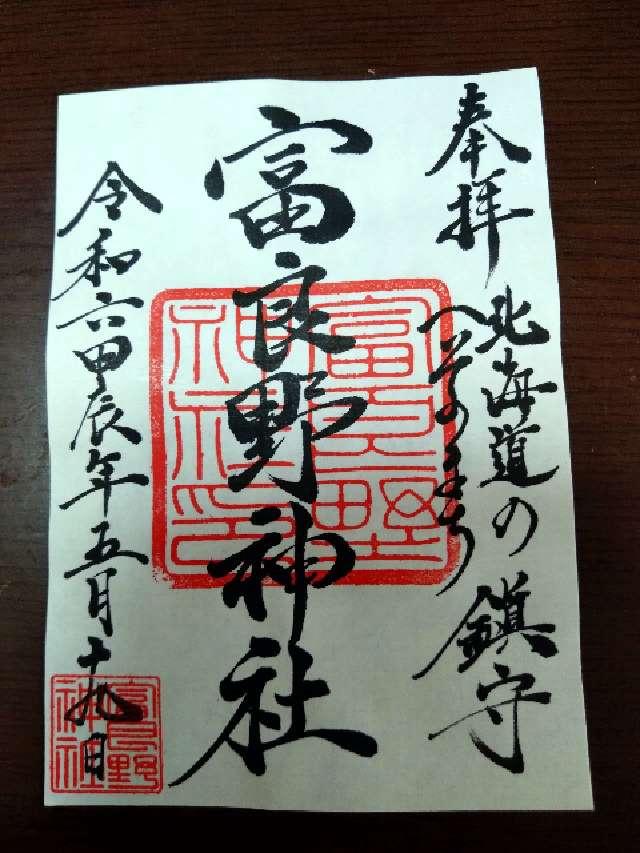 奉拝
北海道の鎮守
へそのまち
富良野神社
富良野
神社印
令和六甲辰年五月十九日
富良野
神社